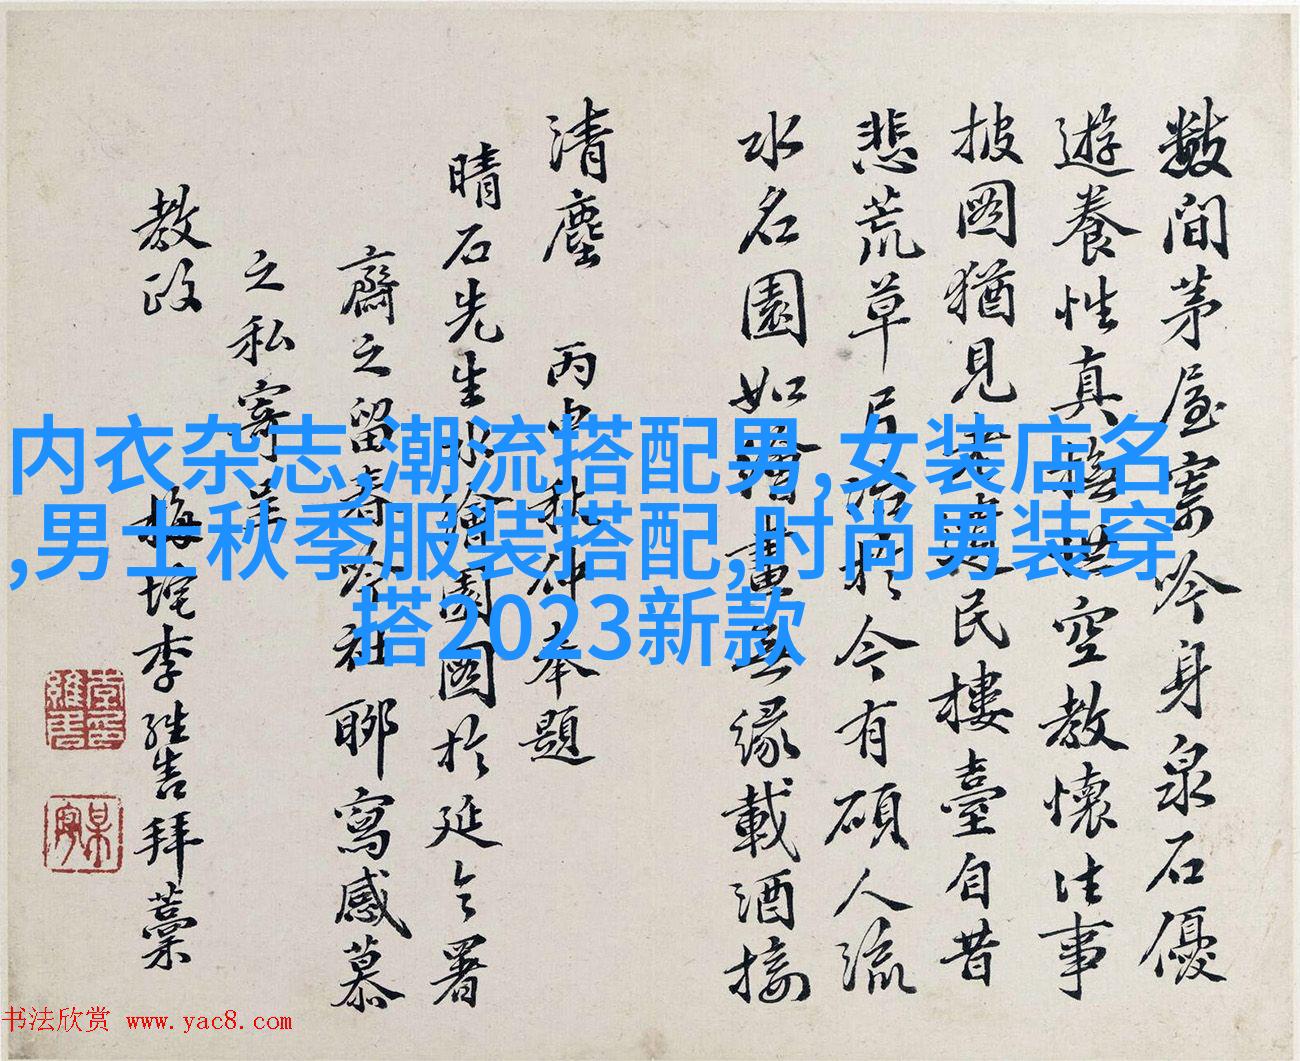 數間茅屋寄吟身泉石優
遊養性真 空教懷往事
披圖猶見 民樓臺自昔
悲荒草 於今有碩人流
水名園如繪畫無緣載酒接
清塵 丙 秋仲奉題
晴石先生 繪園圖於延令署
齋之留春吟社聊寫感慕
之私寄呈
教政 梅垞李維 拜藁
内衣杂志,潮流搭配男,女装店名
,男士秋季服装搭配,时尚男装穿
搭2023新款
书法欣赏 www.yac8.com